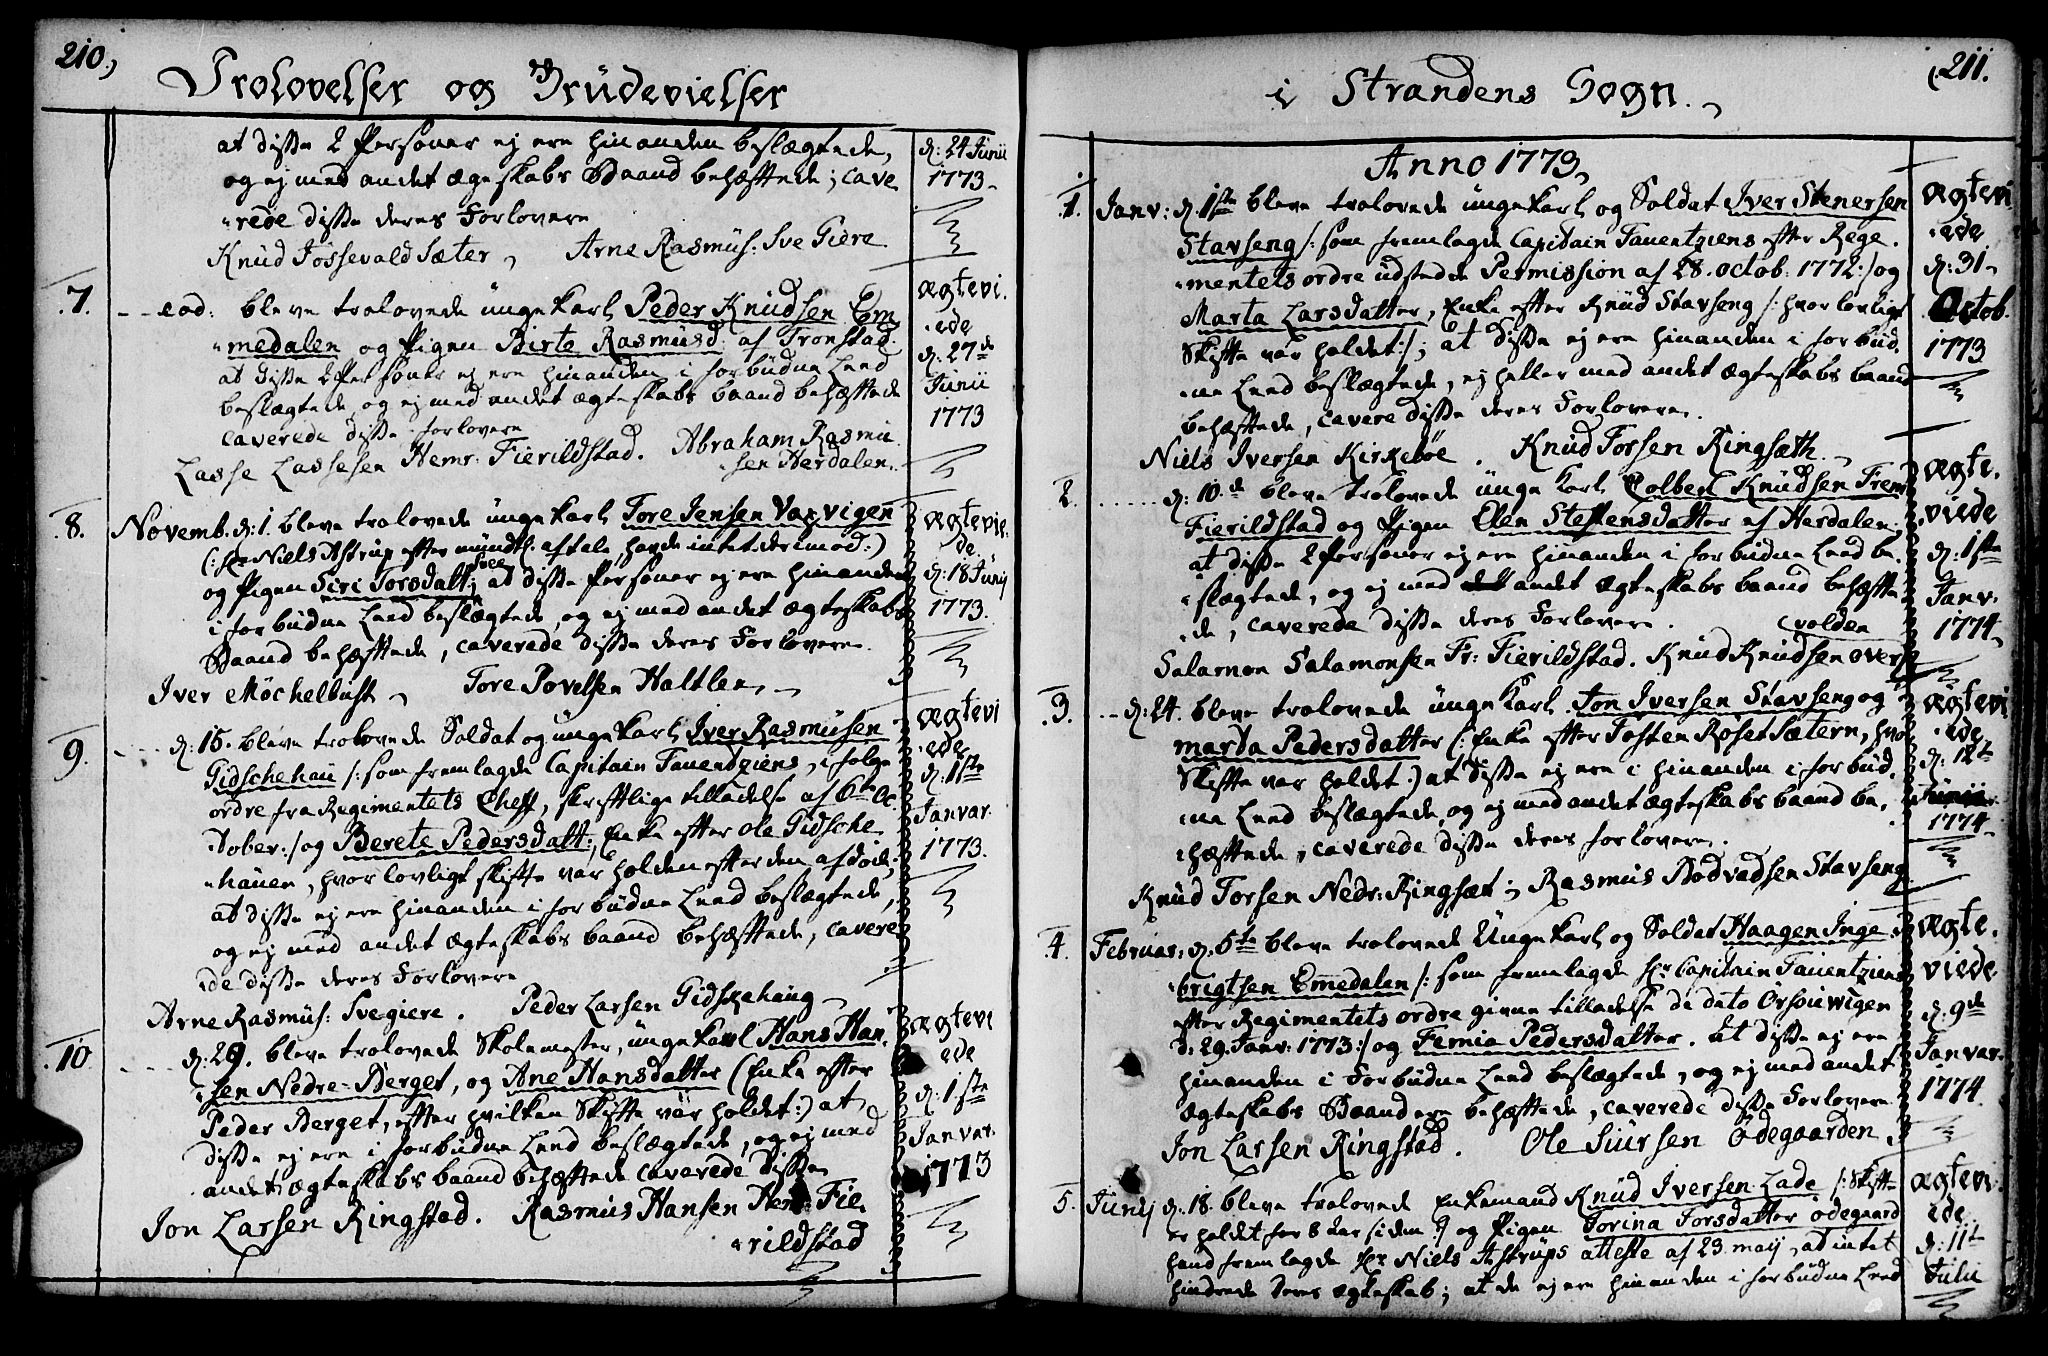 210.
Trolovelser og Brüdevielser
at disse 2 Personer ej ere hinanden beslægtede,
og ej med andet ægteskabs Baand behæftede; cave
rede disse deres Forlovere
Knüd Jössevald Sæter, Arne Rasmüs: Sve Giere
d: 24 Junii
1773
7. - - eod: bleve trolovede ungekarl Peder Knüdsen Em
medalen og Pigen Birte Rasmüsd: af Tronstad.
at disse 2 Personer ej ere hinanden i forbüdne Leed
beslægtede og ej med andet ægteskabs baand behæftede
caverede disse forlovere
Lasse Lassesen Hemr: Fierildstad. Abraham Rasmü
sen Herdalen.
ægtevi.
ede
d: 27de
Junii
1773
8. Novemb. d: 1. bleve trolovede ungekarl Tore Jensen Vaxvigen
(: Hr Niels Astrup efter mündtl: aftale havde intet derimod :)
og Pigen Siri Torsdatt; at disse Personer ej ere hinanden
i forbüdne Leed beslægtede, og ej med andet ægteskabs
Baand behæftede, caverede disse deres Forlovere.
Iver Möchelbust, Tore Povelsen Haltlen,
ægtevie
de
d: 18 Junij
1773.
9. - - - d: 15. bleve trolovede Soldat og ungekarl Iver Rasmüsen
Gidschehau /: som fremlagde Capitain Tauentziens, i følge
ordre fra Regimentets Cheff, skriftlige tilladelse af 6te Oc
tober :/ og Berete Pedersdatt:, Enke efter Ole Gidsche
hauen, hvor lovligt skifte var holden efter den afdöde,
at disse ej ere hinanden i forbüdne Leed beslægtede,
og ej med andet ægteskabs baand behæftede, cavere
de disse deres Forlovere
Arne Rasmüs: Svegiere. Peder Larsen Gidskehaug
ægtevi
ede
d: 1ste
Janvar.
1773.
10. - - - d: 29. bleve trolovede Skolemester, ungekarl Hans Han
sen Nedre-Berget, og Ane Hansdatter (Enke efter
Peder Berget, efter hvilken Skifte var holdet :) at
disse ej ere i forbüdne Leed beslægtede, og ej med
andet ægteskabs baand behæftede caverede disse
Jon Larsen Ringstad. Rasmus Hansen Hem Fie
rildstad
ægtevi
ede
d: 1ste
Janvar.
1773
211.
i Strandens Sogn.
Anno 1773,
1. Janv: d. 1ste bleve trolovede ungekarl og Soldat Iver Stenersen
Stavseng /: som fremlagde Capitain Tauentziens efter Rege
mentets ordre udstedde Permission af 28. octob. 1772 :/ og
Marta Larsdatter, Enke efter Knüd Stavseng /: hvor lovligt
Skifte var holdet :/; at disse ej ere hinanden i forbüd
ne Leed beslægtede, ej heller med andet ægteskabs baand
behæftede, cavere disse deres Forlovere.
Niels Iversen Kirkebøe. Knüd Torsen Ringsæth.
ægtevi
ede
d: 31
Octob.
1773
2. - - - d: 10.de bleve trolovede unge karl Colben Knüdsen Frem
Fierildstad og Pigen Elen Steffensdatter af Herdalen,
at disse 2 Personer ej ere hinanden i forbüdne Leed be
slægtede, og ej med andet ægteskabs baand behæfte
de, caverede disse deres Forlovere.
Salamon Salamonsen Fr: Fierildstad. Knüd Knüdsen Overs
volden
ægte.
viede
d: 1ste
Janv.
1774
3. - - d: 24. bleve trolovede unge Karl Jon Iversen Stavseng og
marta Pedersdatter (: Enke efter Tosten Roset Sætern, hvo
Skifte var holdet :) at disse ej ere i hinanden i forbüd
ne Leed beslægtede og ej med andet ægteskabs baand be
hæftede, caverede disse deres forlovere.
Knüd Torsen Nedr: Ringsæt; Rasmus Bodvadsen Stavseng.
ægtevi
ede
d: 12te
Junii
1774
4. Februar. d. 6te bleve trolovede Ungekarl og Soldat Haagen Inge
brigtsen Emedalen /: som fremlagde Hr Capitain Tauentziens
efter Regimentets ordre givne tilladelse de dato Örsoiewigen
d: 29. Janv: 1773 :/ og Femia Pedersdatter. at disse ej ere
hinanden i Forbüdne Leed beslægtede, og ej med andet
ægteskabs Baand ere behæftede, caverede disse Forlovere
Jon Larsen Ringstad. Ole Siursen Ödegaarden.
ægte.
viede
d. 9de
Janvar.
1774
5. Junij d. 18. bleve trolovede Enkemand Knüd Iversen Lade /: Skifte
er holdet for 8 Aar siden :/ og Pigen Torina Torsdatter ödegaard
hand fremlagde Hr Niels Astrups atteste af 23. maij, at intet
hindrede deres ægteskab; at de ej ere hinanden i forbüdne Leed
ægtevi
ede.
d: 11te
Julii